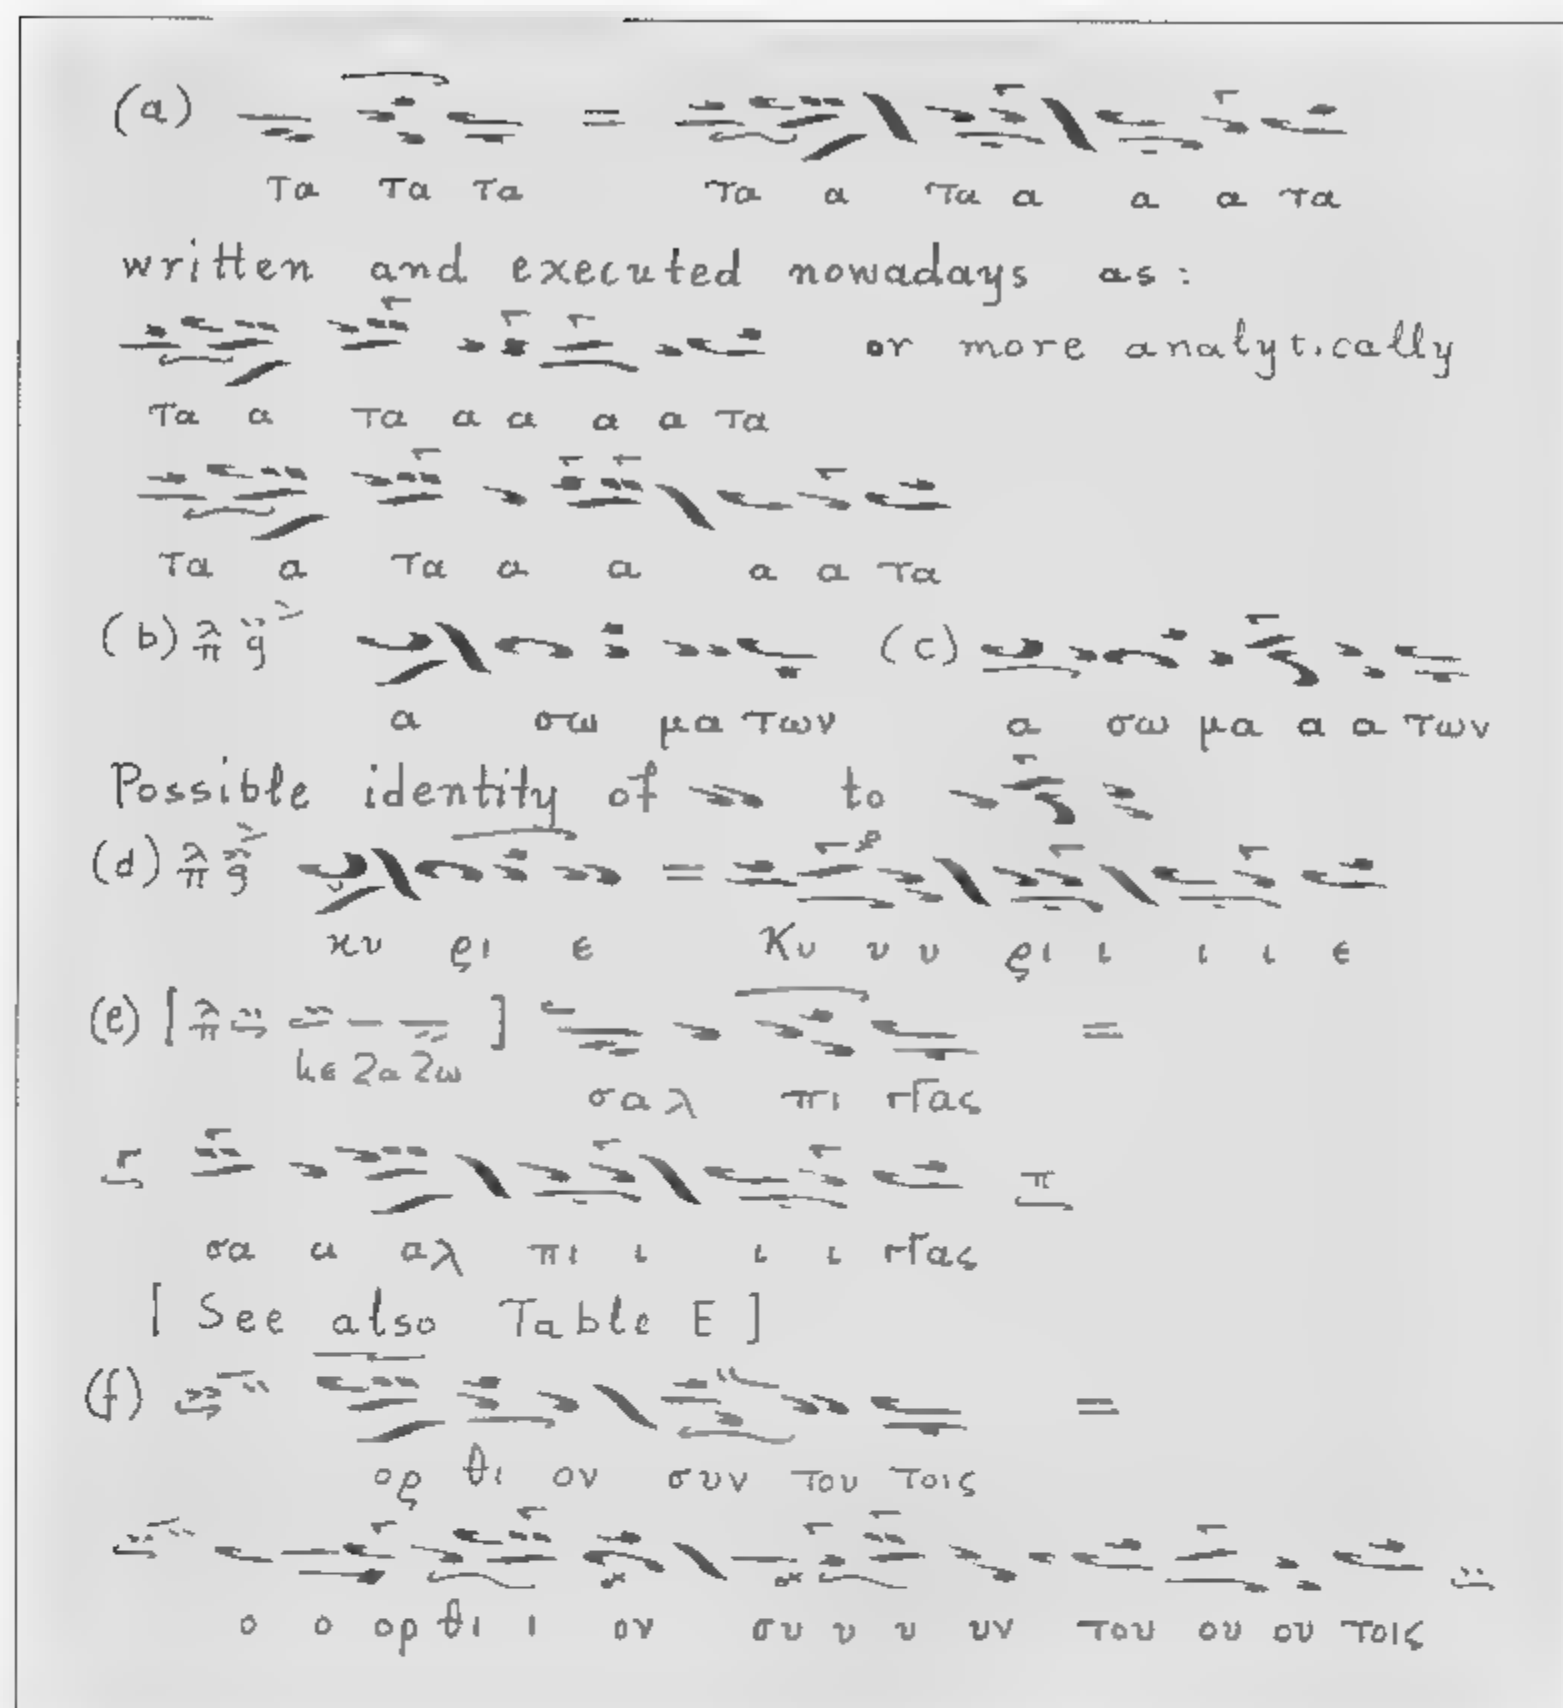 (a) = 
Τα Τα Τα Τα α Τα α α α Τα
written and executed nowadays as:
or more analytically
Τα α Τα α α α α Τα
Τα α Τα α α α α Τα
(b) λ π (c)
α σω μα των α σω μα α α των
Possible identity of to
(d) λ π =
κυ ρι ε Κυ υ υ ρι ι ι ι ε
(e) [ λ π ] =
κε Ζα Ζω
σαλ πι
π
σα α αλ πι ι ι ι
[ See also Table E ]
(f) =
ορ θι ον συν του τοις
ο ο ορ θι ι ον συ υ υ υν του ου ου τοις